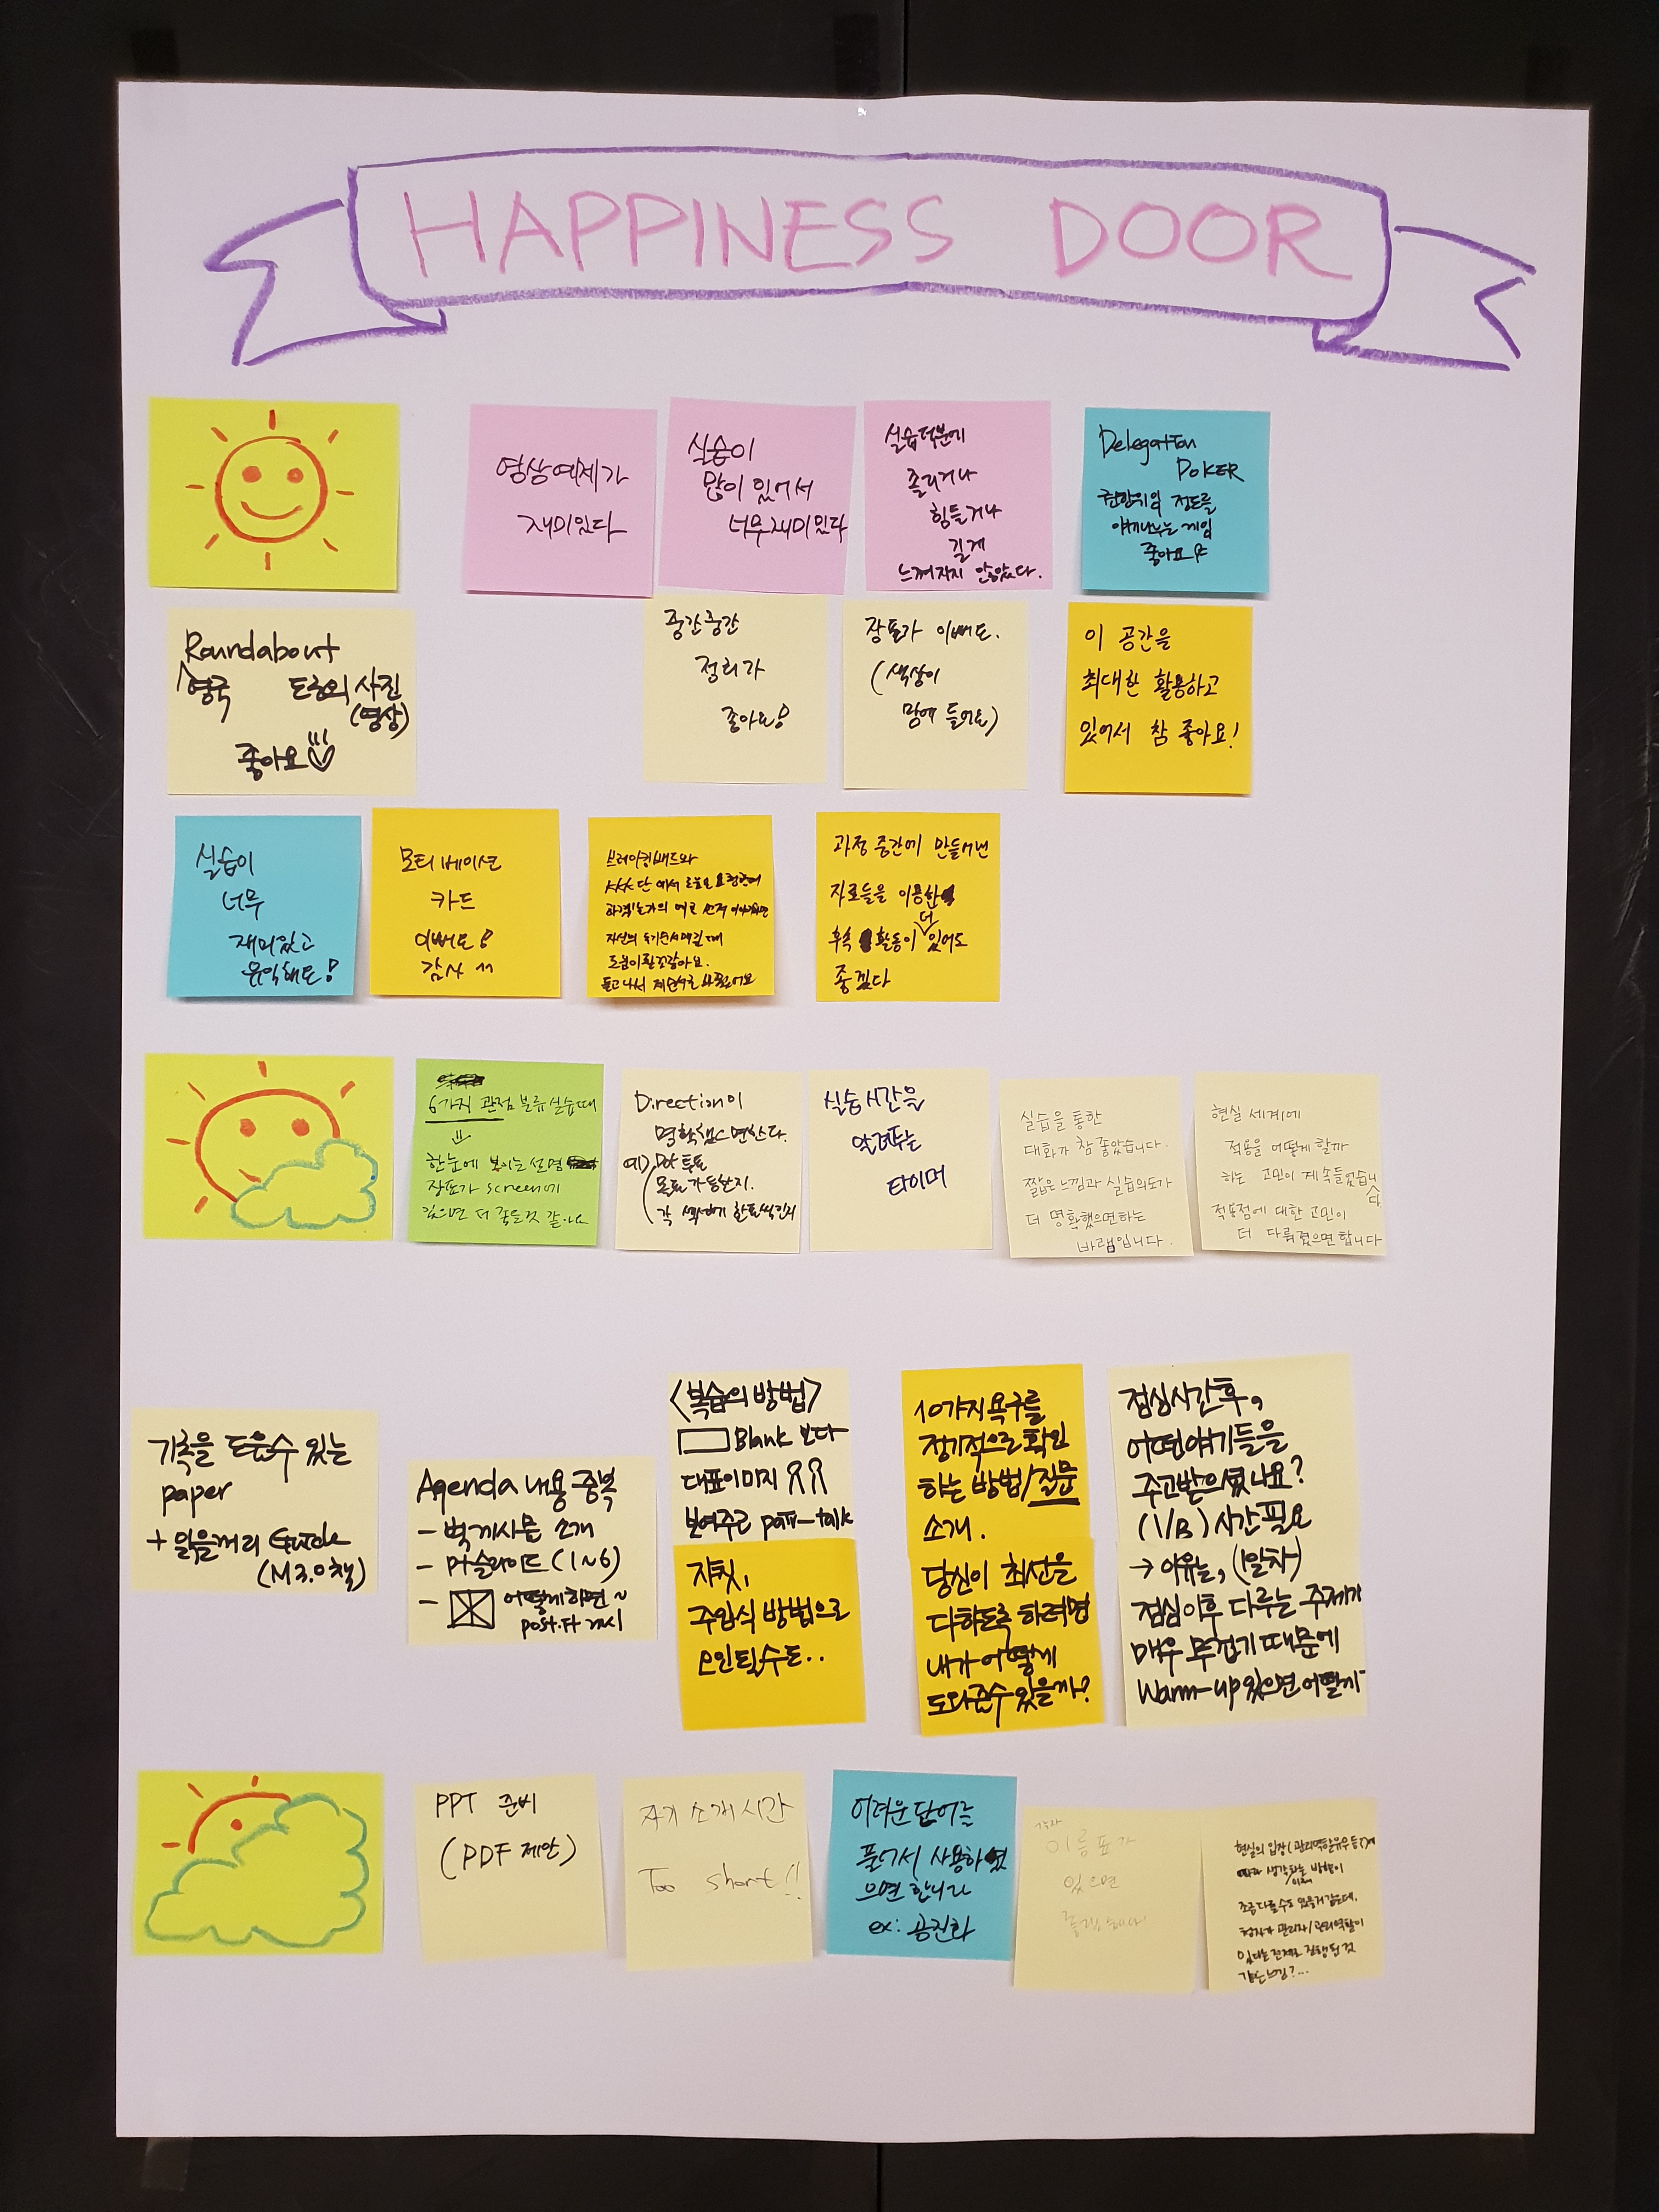 HAPPINESS DOOR
영상예제가
재미있다
실습이
많이 있어서
너무 재미있다
실습덕분에
졸리거나
힘들거나
길게
느껴지지 않았다.
Delegation
POKER
권한위임 정도를
이야기나누는 게임
좋아요
Roundabout
영국 도로의 사진
(영상)
좋아요
중간중간
정리가
좋아요!
장표가 이뻐요.
(색상이
맘에 들어요)
이 공간을
최대한 활용하고
있어서 참 좋아요!
실습이
너무
재미있고
유익해요!
모티베이션
카드
이뻐요!
감사 ^^
브레이킹배드와
자신의 동기순서매길때
도움이될것같아요.
듣고나서 제순서도 바꿨어요
과정 중간에 만들어낸
자료들을 이용한
더
후속 활동이 있어도
좋겠다
6가지 관점 분류실습때
한눈에 보이는 설명
장표가 screen에
있으면 더 좋을것 같아요
Direction이
명확했으면한다.
예) Dot 투표
중복가능한지.
각 섹션에 한표씩인지
실습시간을
알려주는
타이머
실습을 통한
대화가 참 좋았습니다.
짧은 느낌과 실습의도가
더 명확했으면하는
바램입니다.
현실 세계에
적용을 어떻게 할까
하는 고민이 계속들었습니다
적용점에 대한 고민이
더 다뤄졌으면 합니다
기록을 도울수 있는
paper
+ 읽을꺼리 Guide
(M3.0책)
Agenda 내용 중복
- 벽에사용 소개
- PP슬라이드 (1~6)
- 어떻게하면~
post.it 게시
<복습의 방법>
Blank 보다
대표이미지
보여주고 pair-talk
자칫,
주입식 방법으로
보일 수도..
10가지 욕구를
정기적으로 확인
하는 방법/질문
소개.
당신이 최선을
다하도록 하려면
내가 어떻게
도와줄수 있을까?
점심시간후,
어떤얘기들을
주고받으셨나요?
(1/B) 시간 필요
→ 이유는, (1일차)
점심이후 다루는 주제가
매우 무겁기 때문에
Warm-up 있으면 어떨까
PPT 준비
(PDF 제안)
자기 소개 시간
Too short!!
어려운 단어는
풀어서 사용하셨
으면 합니다
ex: 공진화
각자
이름표가
있으면
좋겠네요
현실의 입장(관리역할유무 등)에
따라 생각하는 방향이
조금 다를수도 있을거 같은데,
참가자가 관리자/관리역할이
있다는 전제로 진행된 것
같은 느낌?...